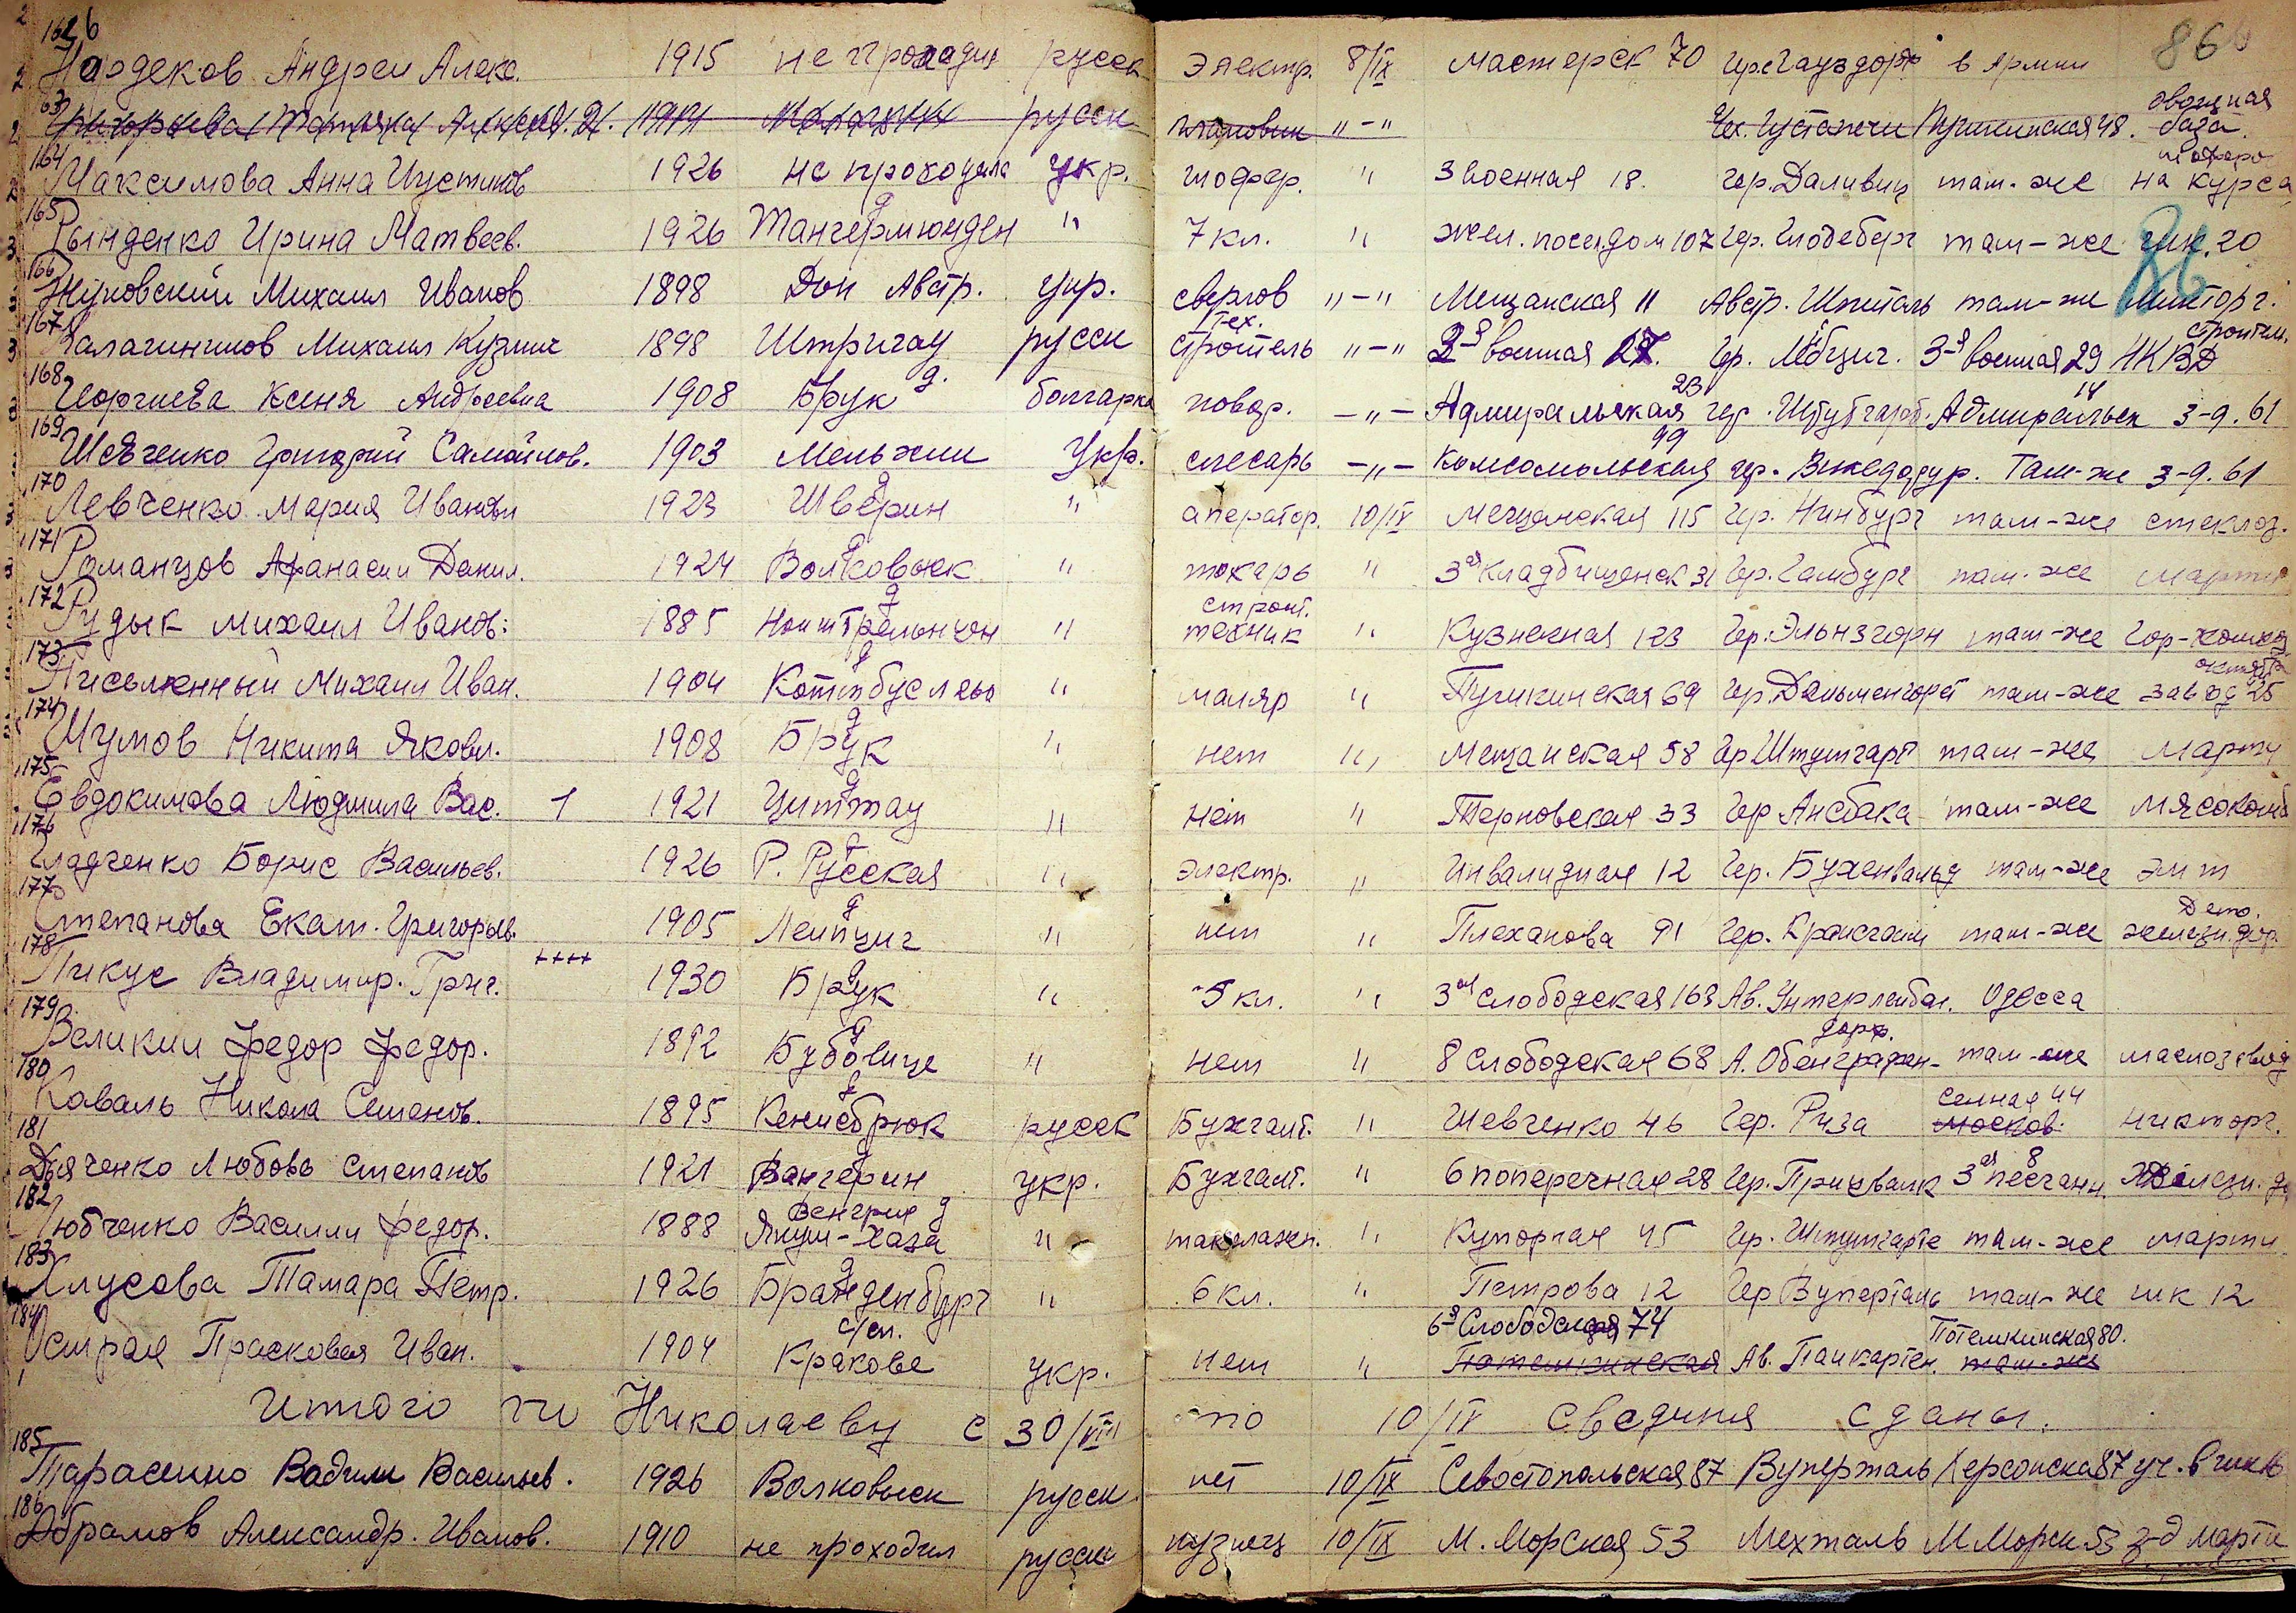 162 Нардеков Андреи Алекс. 1915 не проходил русск электр. 8/IX мастерск 70 в Армии 86
163 русск плановик "-" Пушкинская 48. овощная база.
164 Максимова Анна Иустинов 1926 не проходила укр. шофер. " 3 военная 18. гер. там-же на курса
165 Рынденко Ирина Матвеев. 1926 Тангермюнден " 7 кл. " жел. посел. дом 107 Гер. там-же шк. 20
166 Жуковский Михаил Иванов 1898 Дон Австр. укр. "-" Мещанская 11 Австр. Шпиталь там-же
167 Михаил Кузмич 1898 Штригау русск тех. строитель "-" 2-я военная 27. гр. 3-я военная 29 НКВД строител.
168 Георгиева Ксеня Андреевна 1908 Брук болгарка повар. -"- Адмиральская 23 гер. Штутгарт. Адмиральск 14 3-д. 61
169 Шевченко Григорий Самойлов. 1903 Укр. слесарь -"- Комсомольская 99 гер. Там-же 3-д. 61
170 Левченко Мария Ивановн 1923 Шверин " оператор. 10/IX Мещанская 115 Гер. Нинбург там-же стеклоз.
171 Романцов Афанасии Данил. 1924 Волковыск " токарь " 3ая кладбищенск 31 Гер. Гамбург там-же Марти
172 Рудык Михаил Иванов. 1885 " строит. техник " Кузнечная 123 Гер. Эльмзгорн там-же
173 Письменный Михаил Иван. 1904 " маляр " Пушкинская 69 Гер. Дельменгорст там-же завод 25
174 Шумов Никита Яковл. 1908 Брук " нет " Мещанская 58 Гер Штутгарт там-же Марти
175 Евдокимова Людмила Вас. 1 1921 Циттау " нет " Терновская 33 Гер Ансбака там-же Мясокомб
176 Гладченко Борис Васильев. 1926 Р. Русская " электр. " Инвалидная 12 Гер. Бухенвальд там-же
177 Степанова Екат. Григорьев. 1905 Леипциг " нет " Плеханова 91 Гер. там-же Депо. железн. дор.
178 Пикус Владимир. Григ. ++++ 1930 Брук " 5 кл. " 3ая слободская 163 Ав. Одесса
179 Великии федор федор. 1892 Бубовице " нет " 8 слободская 68 А. там-же маслозавод
180 Коваль Никола Семенов. 1895 Кенигсбрюк русск Бухгалт. " Шевченко 46 Гер. Риза Сенная 44 москов. никторг.
181 Дьяченко Любовь степанов 1921 Вангерин укр. Бухгалт. " 6 поперечная 28 Гер. Прицвалк 3ая песчанн. 8 железн. до
182 Любченко Василии федор. 1888 Венгрия Якуш-Хаза " такелажн. " Купорная 45 Гер. Штутгарте там-же марти
183 Хлусова Тамара Петр. 1926 Бранденбург " 6 кл. " Петрова 12 Гер Вуперталь там-же шк 12
184 Острая Прасковья Иван. 1904 с/сп. Кракове укр. нет " 6-я Слободская 74 Потемкинская Ав. Потемкинская 80. там-же
Итого по Николаеву с 30/VIII по 10/IX сведения сданы.
185 Тарасенко Вадим Васильев. 1926 Волковыск русск нет 10/IX Севостопольская 87 Вуперталь Херсонская 87 уч. в школе
186 Абрамов Александр. Иванов. 1910 не проходил русск кузнец 10/IX М. Морская 53 Мехталь М Морск 53 з-д Марти